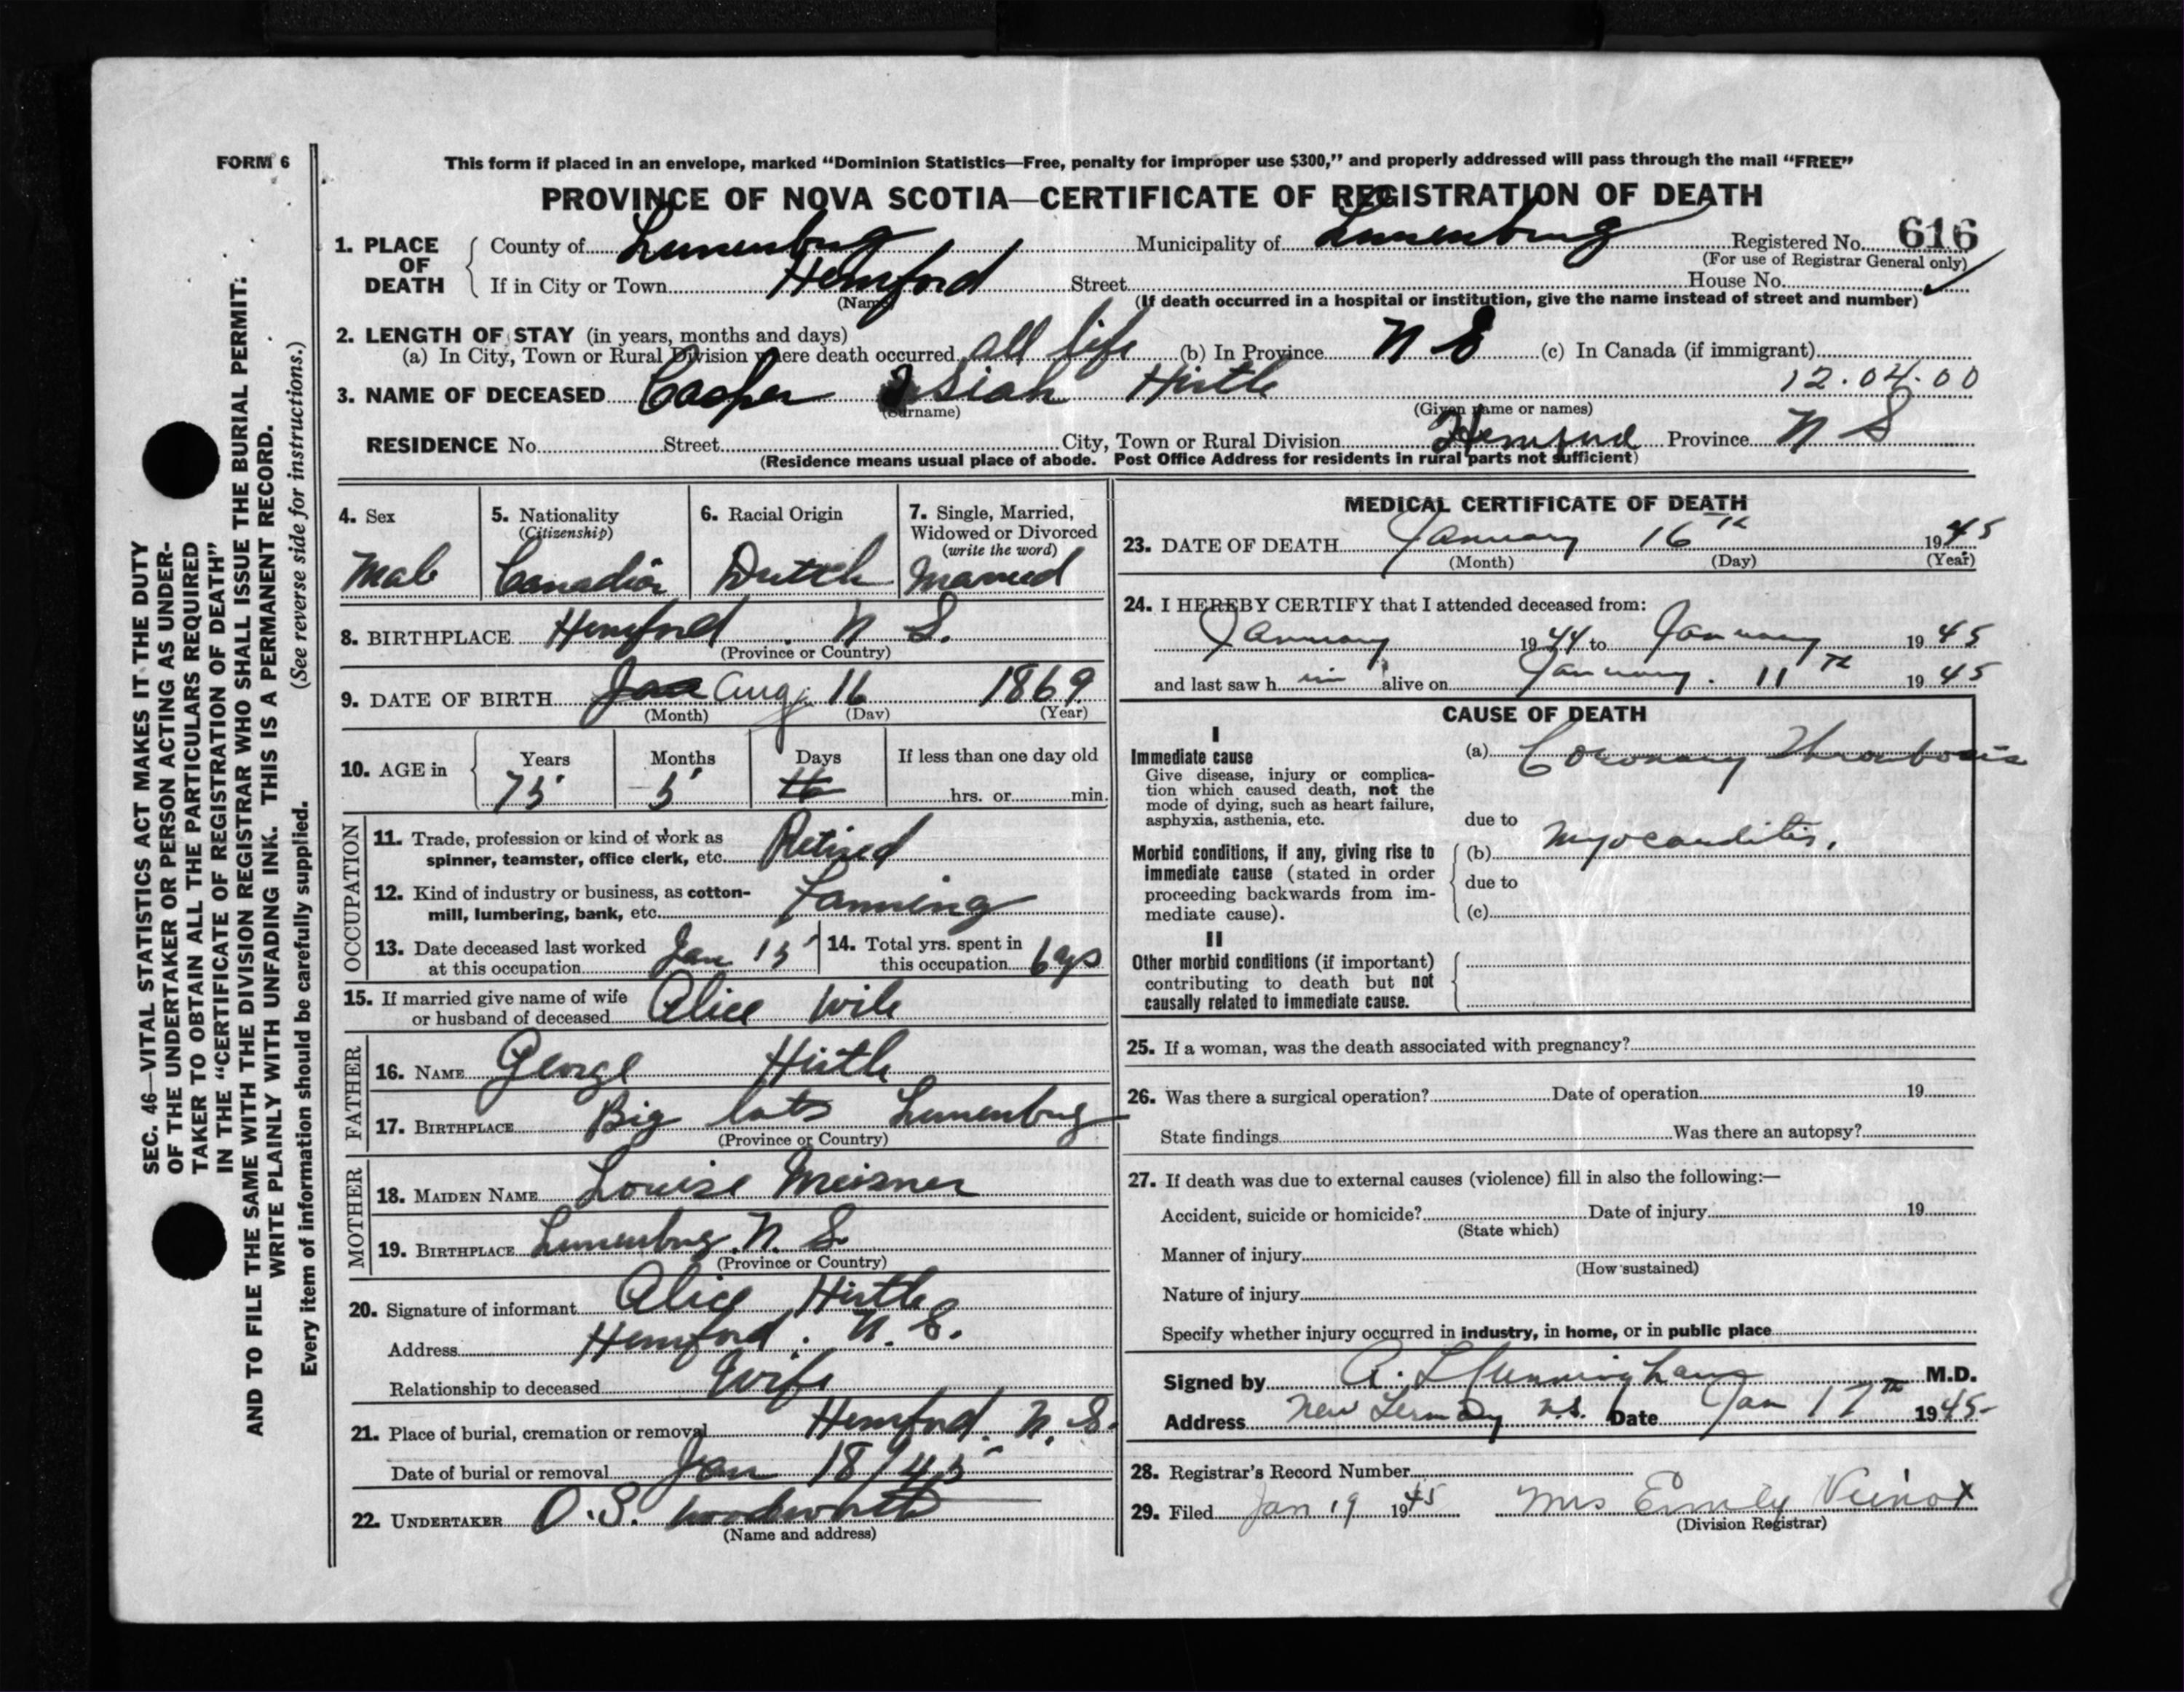 FORM 6
This form if placed in an envelope, marked “Dominion Statistics—Free, penalty for improper use $300,” and properly addressed will pass through the mail “FREE”
PROVINCE OF NOVA SCOTIA—CERTIFICATE OF REGISTRATION OF DEATH
1. PLACE OF DEATH County of Lunenburg Municipality of Lunenburg Registered No. 616
(For use of Registrar General only)
If in City or Town Hemford Street House No.
(Name) (If death occurred in a hospital or institution, give the name instead of street and number)
2. LENGTH OF STAY (in years, months and days)
(a) In City, Town or Rural Division where death occurred all life (b) In Province N S (c) In Canada (if immigrant)
12.04.00
3. NAME OF DECEASED Casper Isiah Hirtle
(Surname) (Given name or names)
RESIDENCE No. Street City, Town or Rural Division Hemford Province N S
(Residence means usual place of abode. Post Office Address for residents in rural parts not sufficient)
4. Sex
Male
5. Nationality
(Citizenship)
Canadian
6. Racial Origin
Dutch
7. Single, Married,
Widowed or Divorced
(write the word)
Married
8. BIRTHPLACE Hemford. N S.
(Province or Country)
9. DATE OF BIRTH Jan Aug. 16 1869
(Month) (Day) (Year)
10. AGE in Years Months Days If less than one day old
75 5 16 hrs. or min.
OCCUPATION
11. Trade, profession or kind of work as
spinner, teamster, office clerk, etc. Retired
12. Kind of industry or business, as cotton-
mill, lumbering, bank, etc. Farming
13. Date deceased last worked
at this occupation Jan 15
14. Total yrs. spent in
this occupation
15. If married give name of wife
or husband of deceased Alice Wile
FATHER
16. NAME George Hirtle
17. BIRTHPLACE Big lots Lunenburg
(Province or Country)
MOTHER
18. MAIDEN NAME Louise Meisner
19. BIRTHPLACE Lunenburg. N. S.
(Province or Country)
20. Signature of informant Alice Hirtle
Address Hemford. N. S.
Relationship to deceased Wife
21. Place of burial, cremation or removal Hemford. N. S.
Date of burial or removal Jan 18/45
22. UNDERTAKER O.S. Woodworth
(Name and address)
MEDICAL CERTIFICATE OF DEATH
23. DATE OF DEATH January 16th 1945
(Month) (Day) (Year)
24. I HEREBY CERTIFY that I attended deceased from:
January 1944 to January 1945
and last saw him alive on January. 11th 1945
CAUSE OF DEATH
I
Immediate cause
Give disease, injury or complica-
tion which caused death, not the
mode of dying, such as heart failure,
asphyxia, asthenia, etc.
(a) Coronary Thrombosis
due to
Morbid conditions, if any, giving rise to
immediate cause (stated in order
proceeding backwards from im-
mediate cause).
(b) Myocarditis.
due to
(c)
II
Other morbid conditions (if important)
contributing to death but not
causally related to immediate cause.
25. If a woman, was the death associated with pregnancy?
26. Was there a surgical operation? Date of operation 19
State findings Was there an autopsy?
27. If death was due to external causes (violence) fill in also the following:—
Accident, suicide or homicide? Date of injury 19
(State which)
Manner of injury
(How sustained)
Nature of injury
Specify whether injury occurred in industry, in home, or in public place
Signed by A. L Cunningham M.D.
Address New Germany N.S. Date Jan 17th 1945
28. Registrar's Record Number
29. Filed Jan 19 1945 Mrs Emily Veinot
(Division Registrar)
SEC. 46—VITAL STATISTICS ACT MAKES IT THE DUTY
OF THE UNDERTAKER OR PERSON ACTING AS UNDER-
TAKER TO OBTAIN ALL THE PARTICULARS REQUIRED
IN THE “CERTIFICATE OF REGISTRATION OF DEATH”
AND TO FILE THE SAME WITH THE DIVISION REGISTRAR WHO SHALL ISSUE THE BURIAL PERMIT:
WRITE PLAINLY WITH UNFADING INK. THIS IS A PERMANENT RECORD.
Every item of information should be carefully supplied. (See reverse side for instructions.)